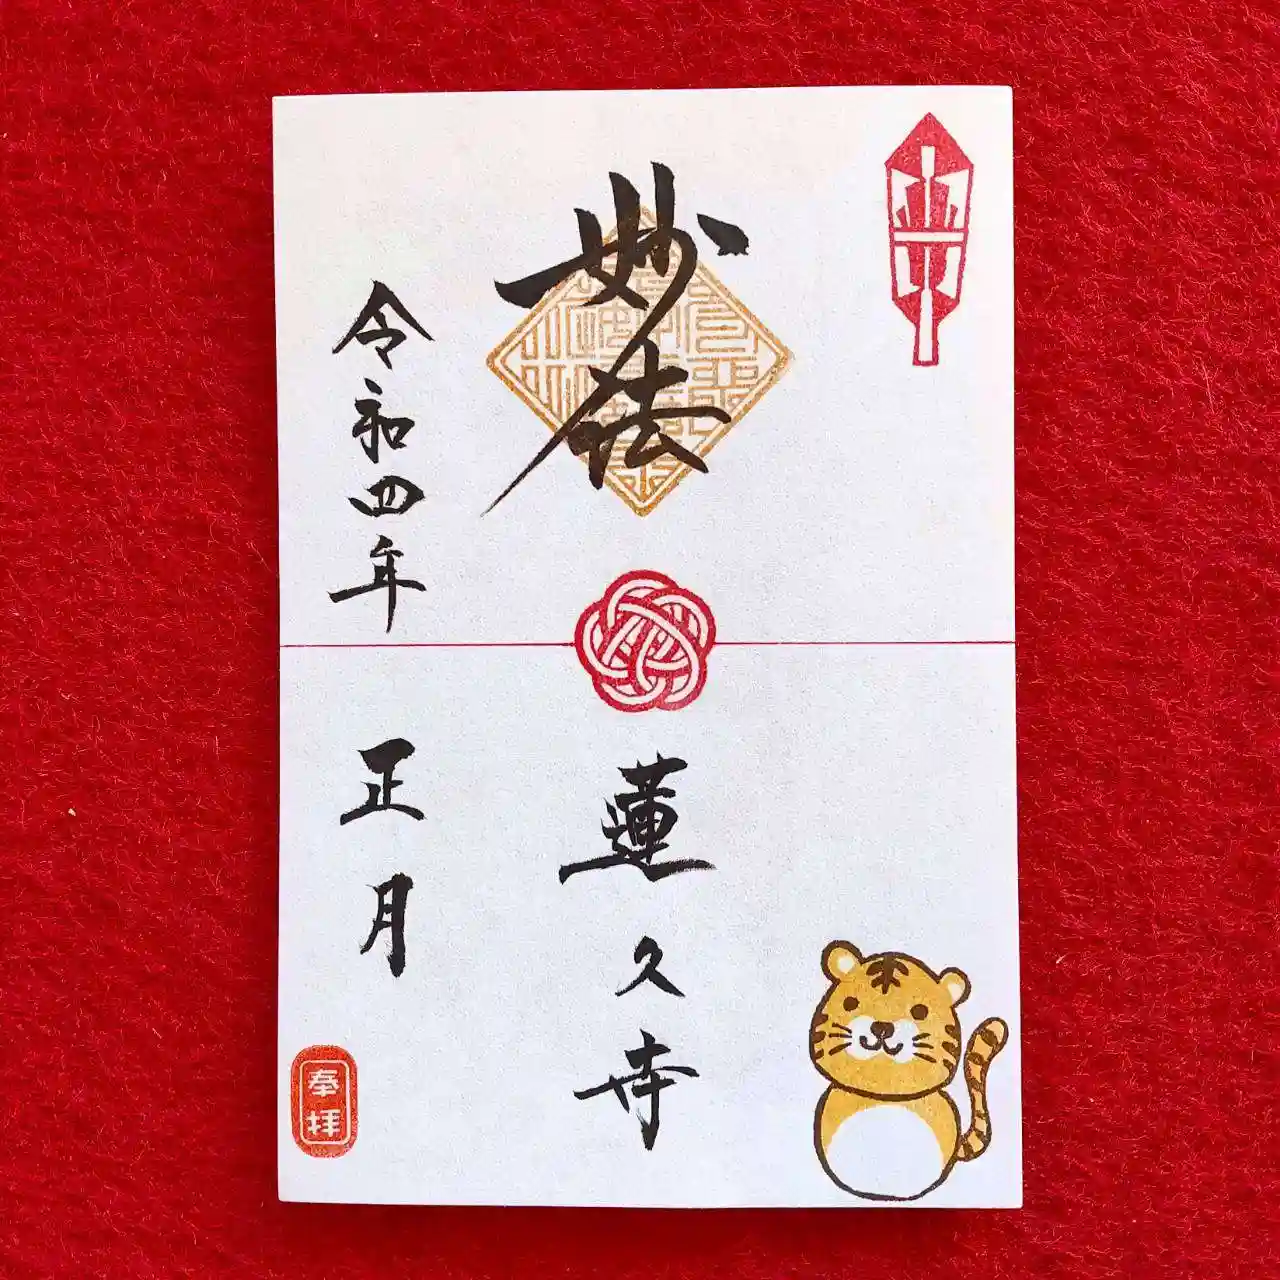 妙法
蓮久寺
令和四年
正月
奉拝